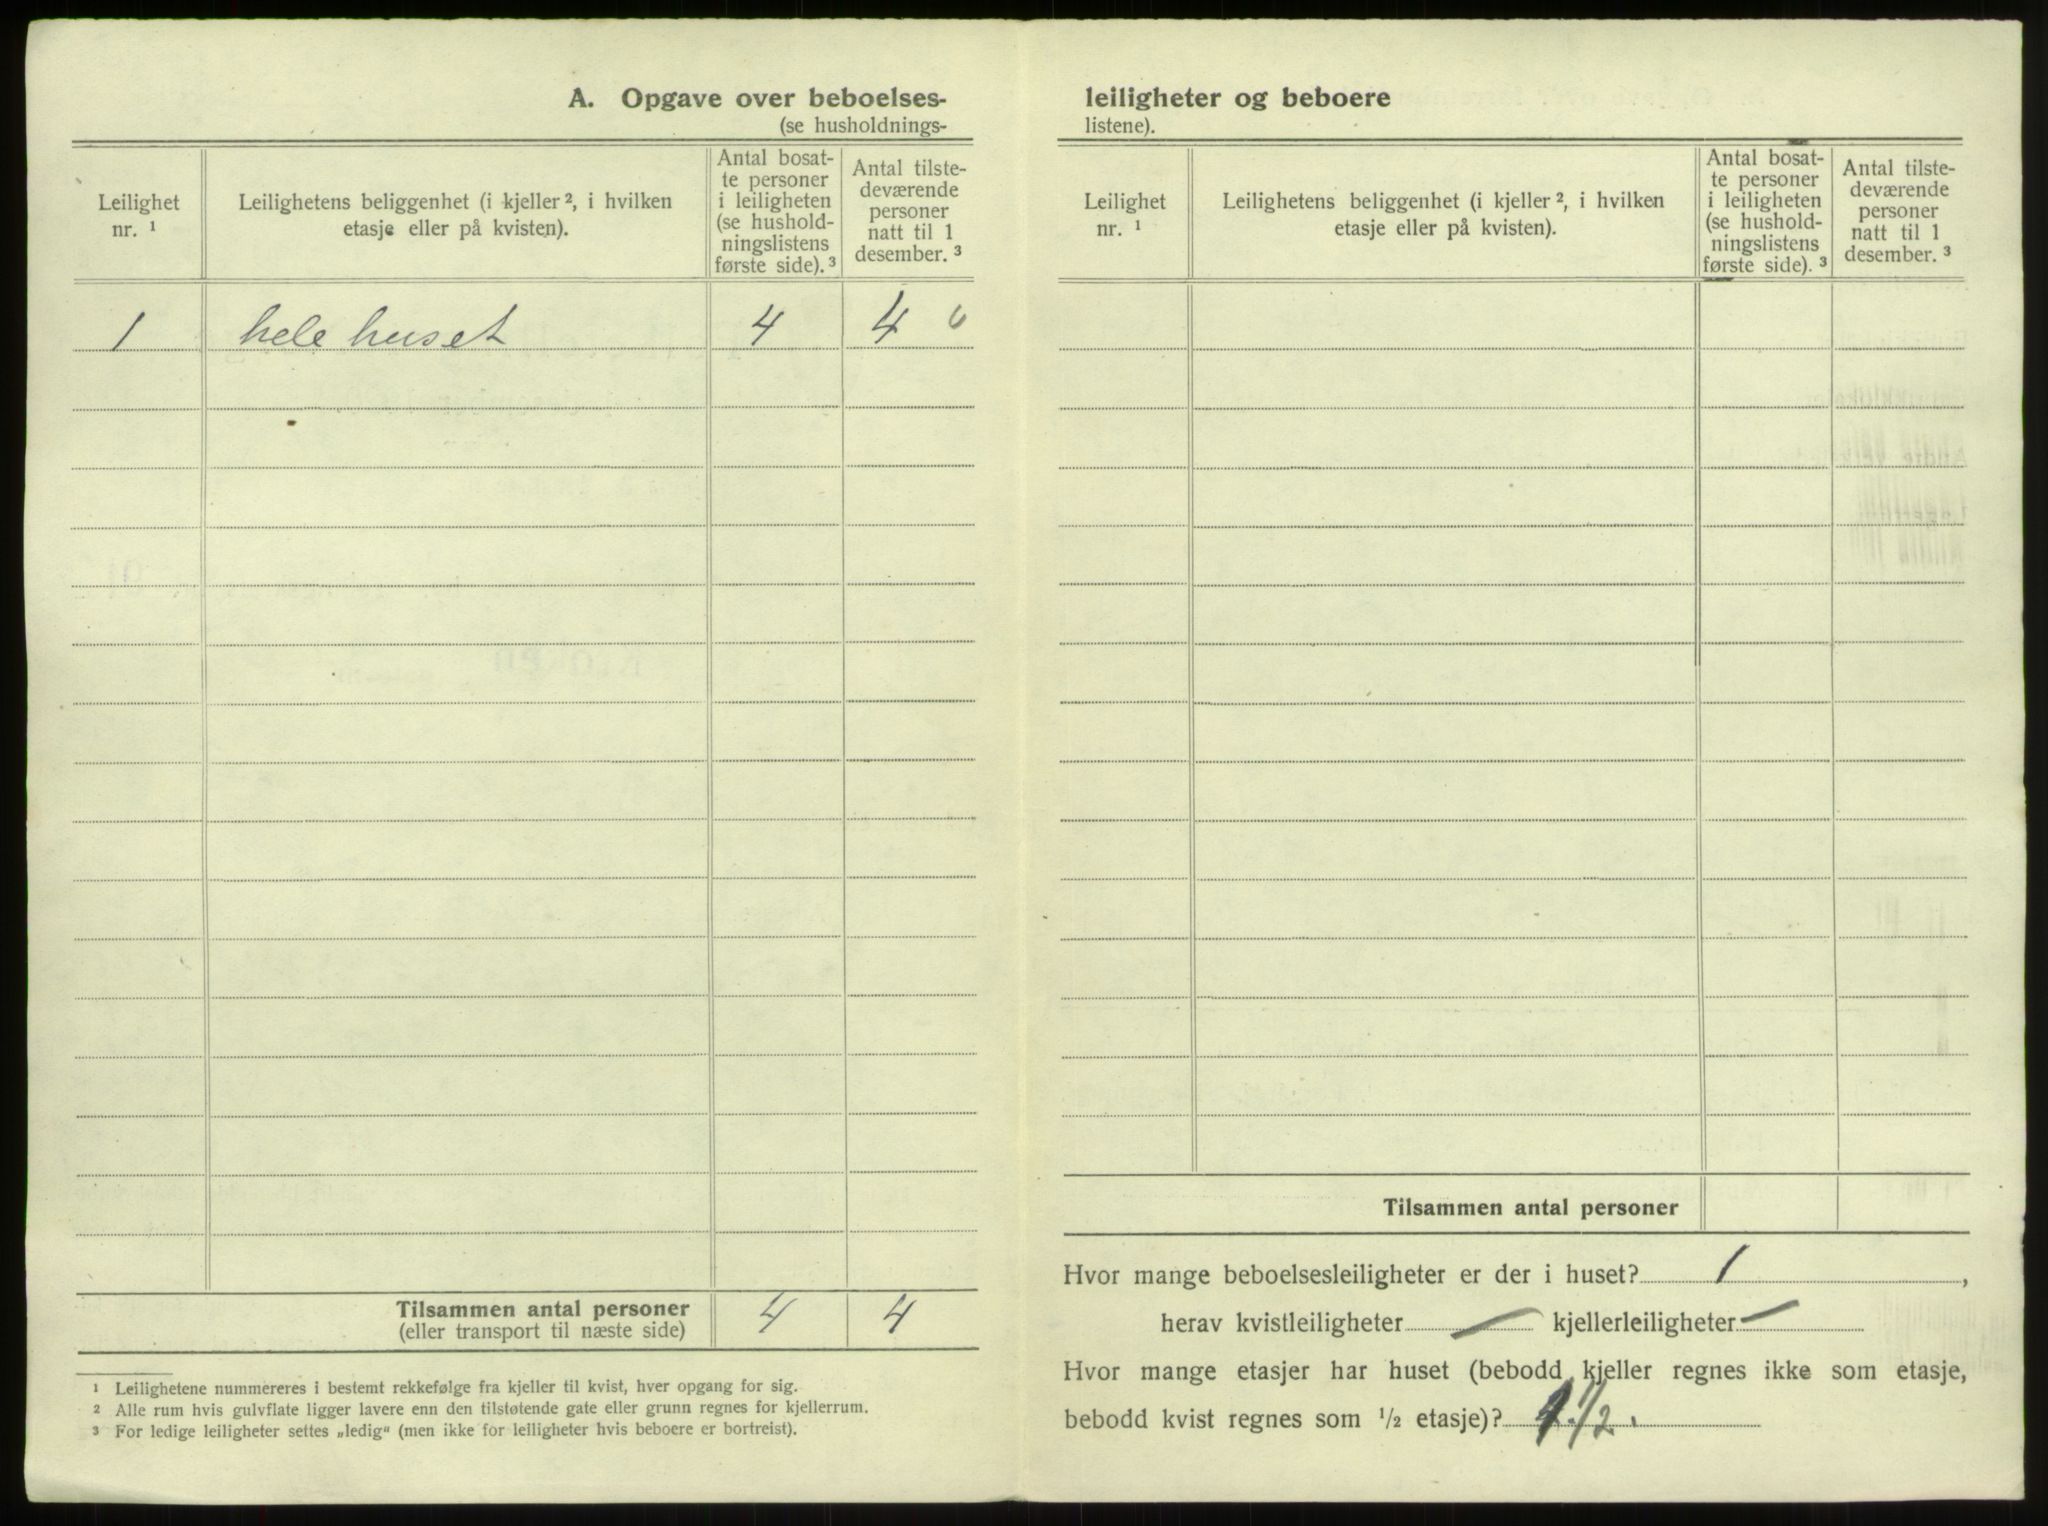 A. Opgave over beboelses-
(se husholdnings-
Leilighet
nr. ¹
Leilighetens beliggenhet (i kjeller ², i hvilken
etasje eller på kvisten).
Antal bosat-
te personer
i leiligheten
(se hushold-
ningslistens
første side). ³
Antal tilste-
deværende
personer
natt til 1
desember. ³
1 hele huset 4 4
Tilsammen antal personer 4 4
(eller transport til næste side)
¹ Leilighetene nummereres i bestemt rekkefølge fra kjeller til kvist, hver opgang for sig.
² Alle rum hvis gulvflate ligger lavere enn den tilstøtende gate eller grunn regnes for kjellerrum.
³ For ledige leiligheter settes „ledig“ (men ikke for leiligheter hvis beboere er bortreist).
leiligheter og beboere
listene).
Leilighet
nr. ¹
Leilighetens beliggenhet (i kjeller ², i hvilken
etasje eller på kvisten).
Antal bosat-
te personer
i leiligheten
(se hushold-
ningslistens
første side). ³
Antal tilste-
deværende
personer
natt til 1
desember. ³
Tilsammen antal personer
Hvor mange beboelsesleiligheter er der i huset? 1,
herav kvistleiligheter — kjellerleiligheter —
Hvor mange etasjer har huset (bebodd kjeller regnes ikke som etasje,
bebodd kvist regnes som ½ etasje)? 1 ½.